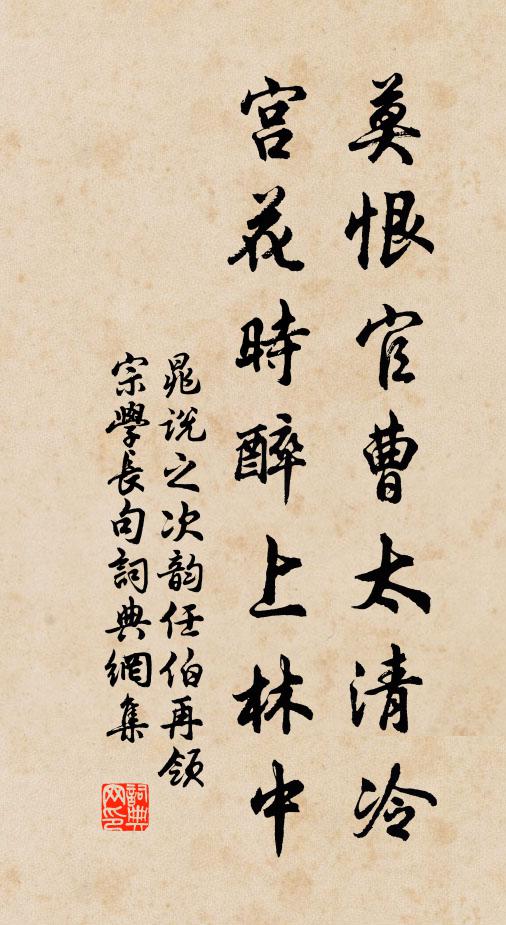 莫恨官曹太清冷
宫花時醉上林中
晁說之次韵任伯再領
宗學長句詞典網集
詞典
网印